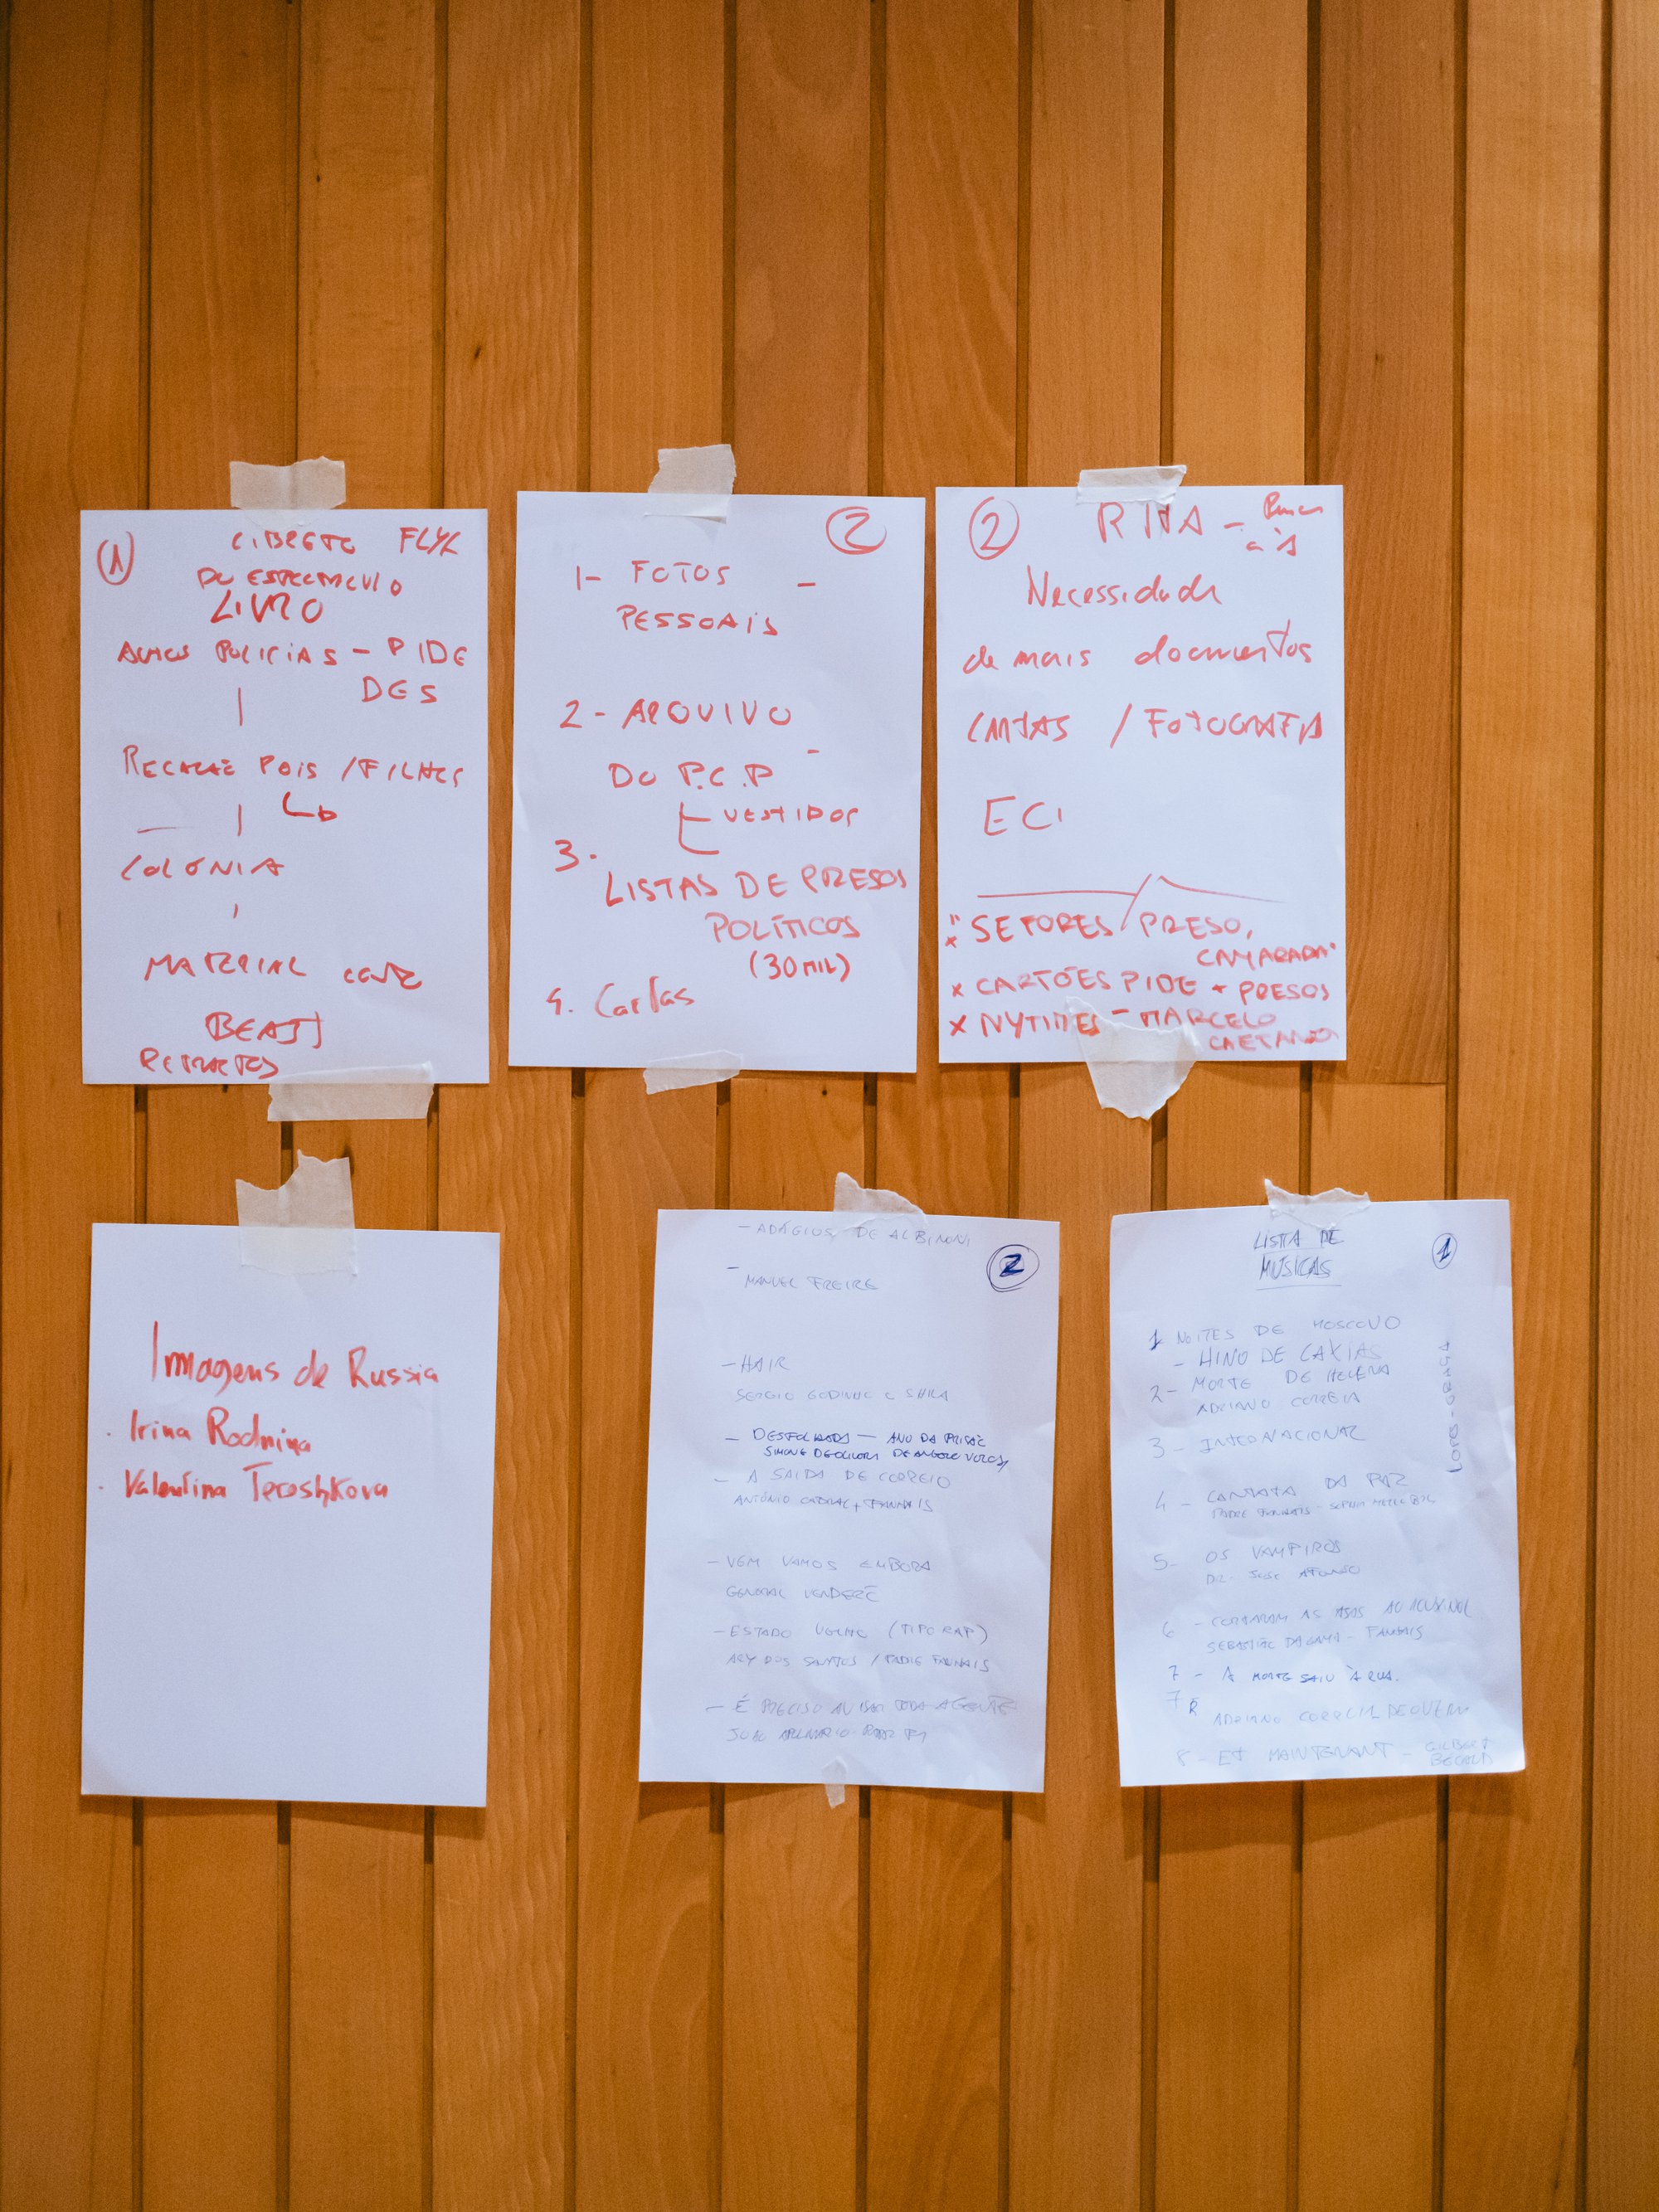 1
LIBRETO
DO ESPECTÁCULO
LIVRO
POLICIAS - PIDE
DGS
/FILHOS
COLÓNIA
MATERIAL
RETRATOS
2
1- FOTOS -
PESSOAIS
2- ARQUIVO
DO P.C.P
VESTIDOS
3.
LISTAS DE PRESOS
POLÍTICOS
(30 MIL)
4. Cartas
2
RITA -
Necessidade
de mais documentos
CARTAS / FOTOGRAFIA
" SETORES / PRESO,
CAMARADA"
x CARTÕES PIDE + PRESOS
x NYTIMES - MARCELO
CAETANO
Imagens de Russia
· Irina Rodnina
· Valentina Tereshkova
- ADÁGIOS DE ALBINONI
2
-
MANUEL FREIRE
- HAIR
SERGIO GODINHO E SHILA
- DESFOLHADA - ANO DA
SIMONE DE OLIVEIRA
- A SAIDA DE CORREIO
ANTÓNIO CABRAL + FANHAIS
- VEM VAMOS EMBORA
GERALDO VANDRÉ
- ESTADO VELHO (TIPO RAP)
ARY DOS SANTOS / PADRE FANHAIS
- É PRECISO AVISAR TODA A GENTE
LISTA DE
MUSICAS
1
1 NOITES DE MOSCOVO
- HINO DE CAXIAS
2- MORTE DE HELENA
ADRIANO CORREIA
3 - INTERNACIONAL
4 - CANTATA DA PAZ
PADRE FANHAIS -
5- OS VAMPIROS
AFONSO
6 - CORTARAM AS ASAS AO ROUXINOL
SEBASTIÃO DA GAMA - FANHAIS
7 - A MORTE SAIU À RUA.
7
ADRIANO CORREIA DE OLIVEIRA
8 - ET MAINTENANT - GILBERT
BÉCAUD